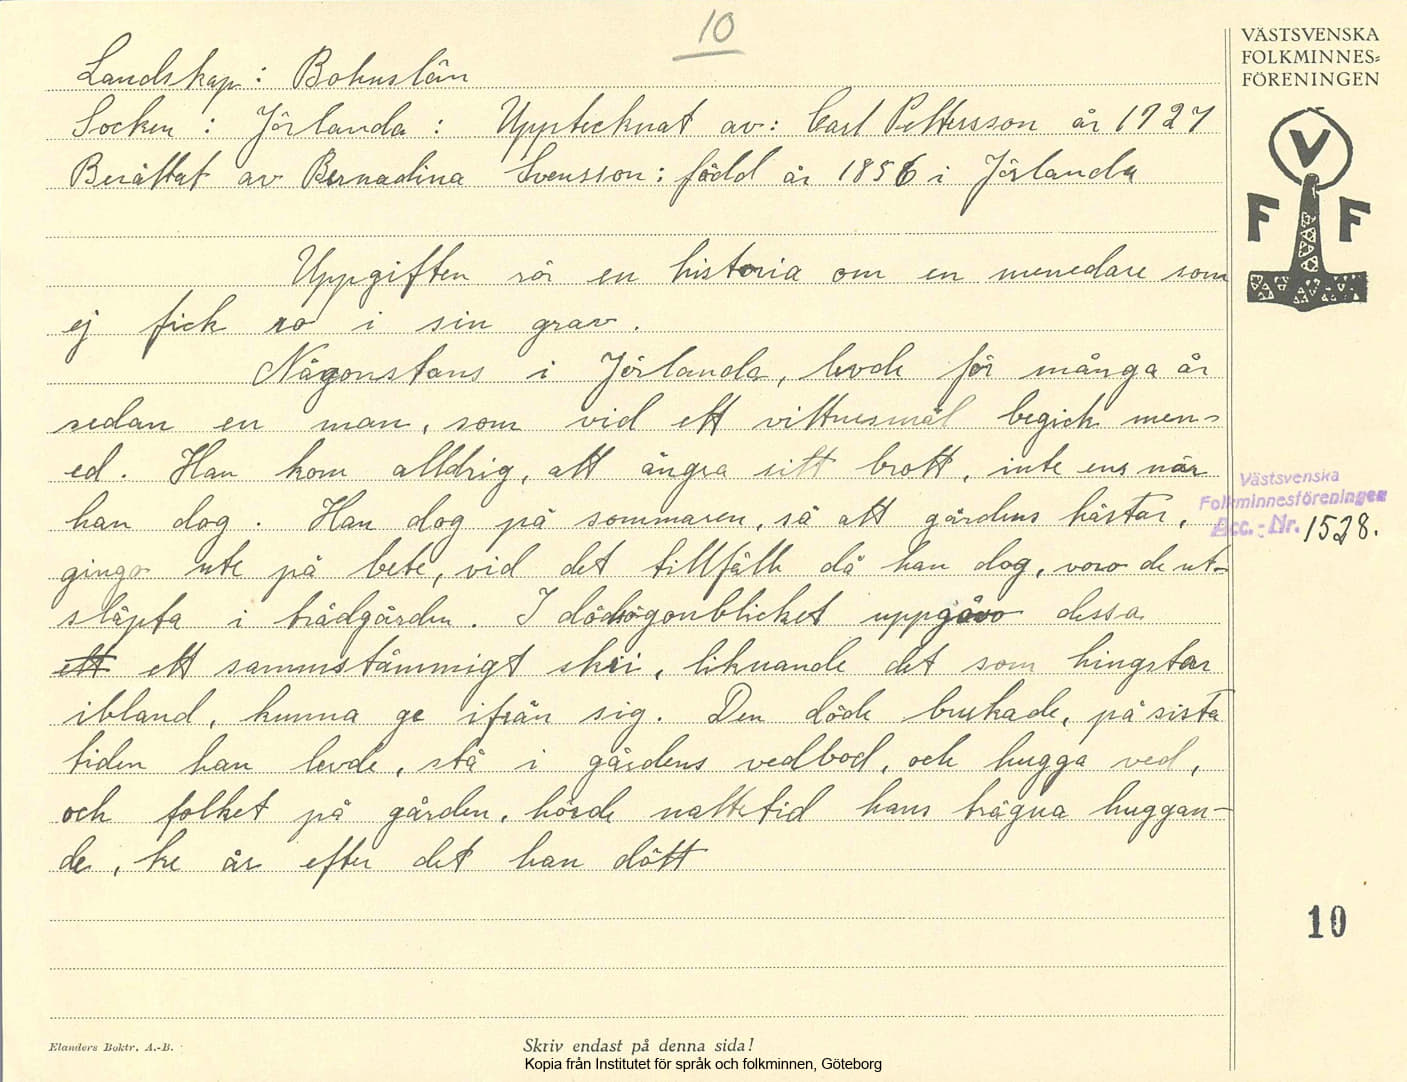 10
Landskap: Bohuslän
Socken: Jörlanda: Upptecknat av: Carl Pettersson år 1927
Berättat av Bernadina Svensson: född år 1856 i Jörlanda
Uppgiften rör en historia om en menedare som
ej fick ro i sin grav.
Någonstans i Jörlanda, levde för många år
sedan en man, som vid ett vittnesmål begick men=
ed. Han kom alldrig, att ångra sitt brott, inte ens när
han dog. Han dog på sommaren, så att gårdens hästar,
gingo ute på bete, vid det tillfälle då han dog, voro de ut-
släpta i trädgården. I dödsögonblicket uppgåvo dessa
ett ett sammstämmigt skri, liknande det som hingstar
ibland, kunna ge ifrån sig. Den döde brukade, på sista
tiden han levde, stå i gårdens vedbod, och hugga ved,
och folket på gården, hörde nattetid hans trägna huggan-
de, tre år efter det han dött
VÄSTSVENSKA
FOLKMINNES=
FÖRENINGEN
V
F F
Västsvenska
Folkminnesföreningen
Acc.-Nr. 1528.
10
Elanders Boktr. A.-B.
Skriv endast på denna sida!
Kopia från Institutet för språk och folkminnen, Göteborg